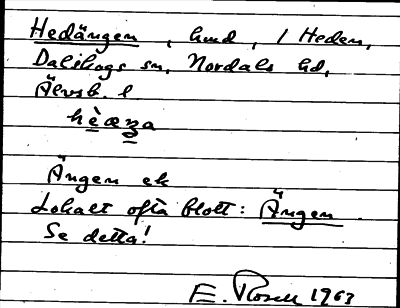 Hedängen, hmd, / Heden,
Dalskogs sn, Nordals hd,
Älvsb. l
Ängen ek
Lokalt ofta blott: Ängen
Se detta!
E. Rosell 1963